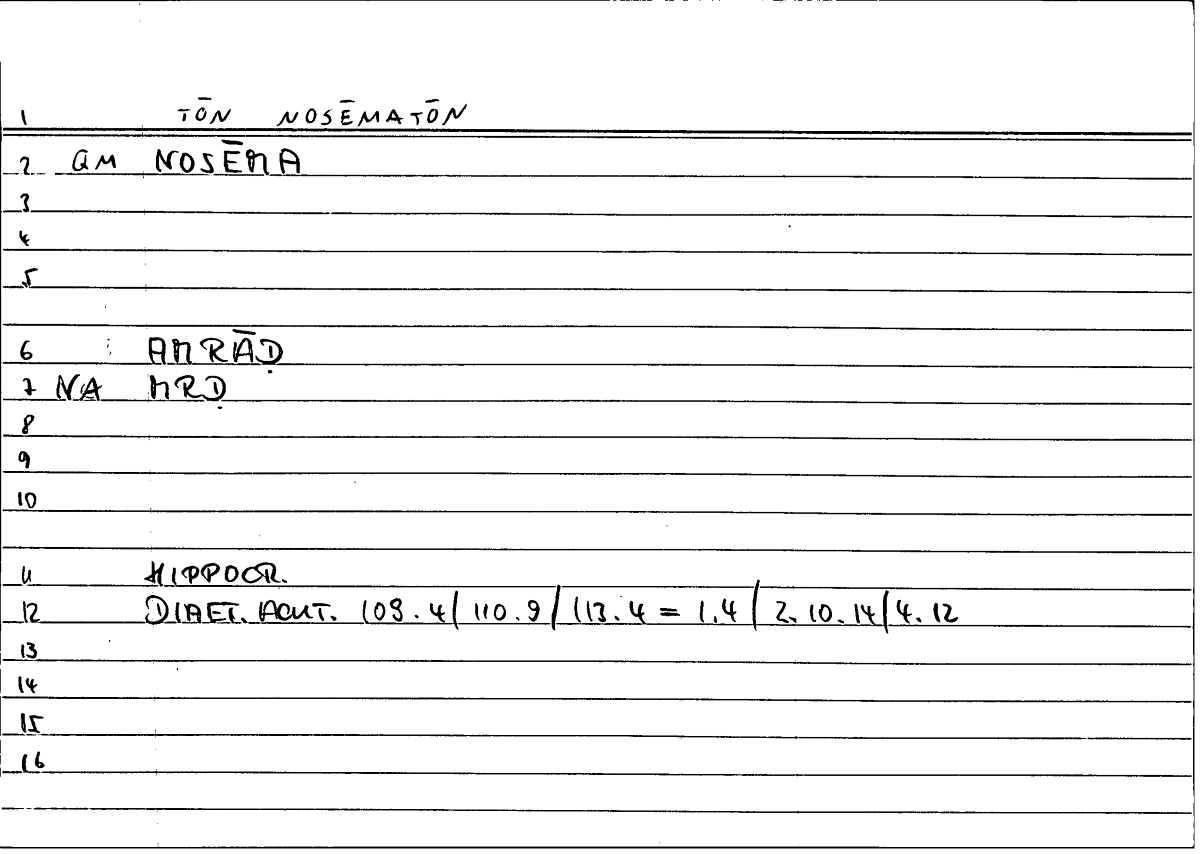 1 TŌN NOSĒMATŌN
2 QM NOSĒMA
3
4
5
6 AMRĀḌ
7 NA MRḌ
8
9
10
11 HIPPOCR.
12 DIAET. ACUT. 109.4/110.9/113.4 = 1.4/2.10.14/4.12
13
14
15
16